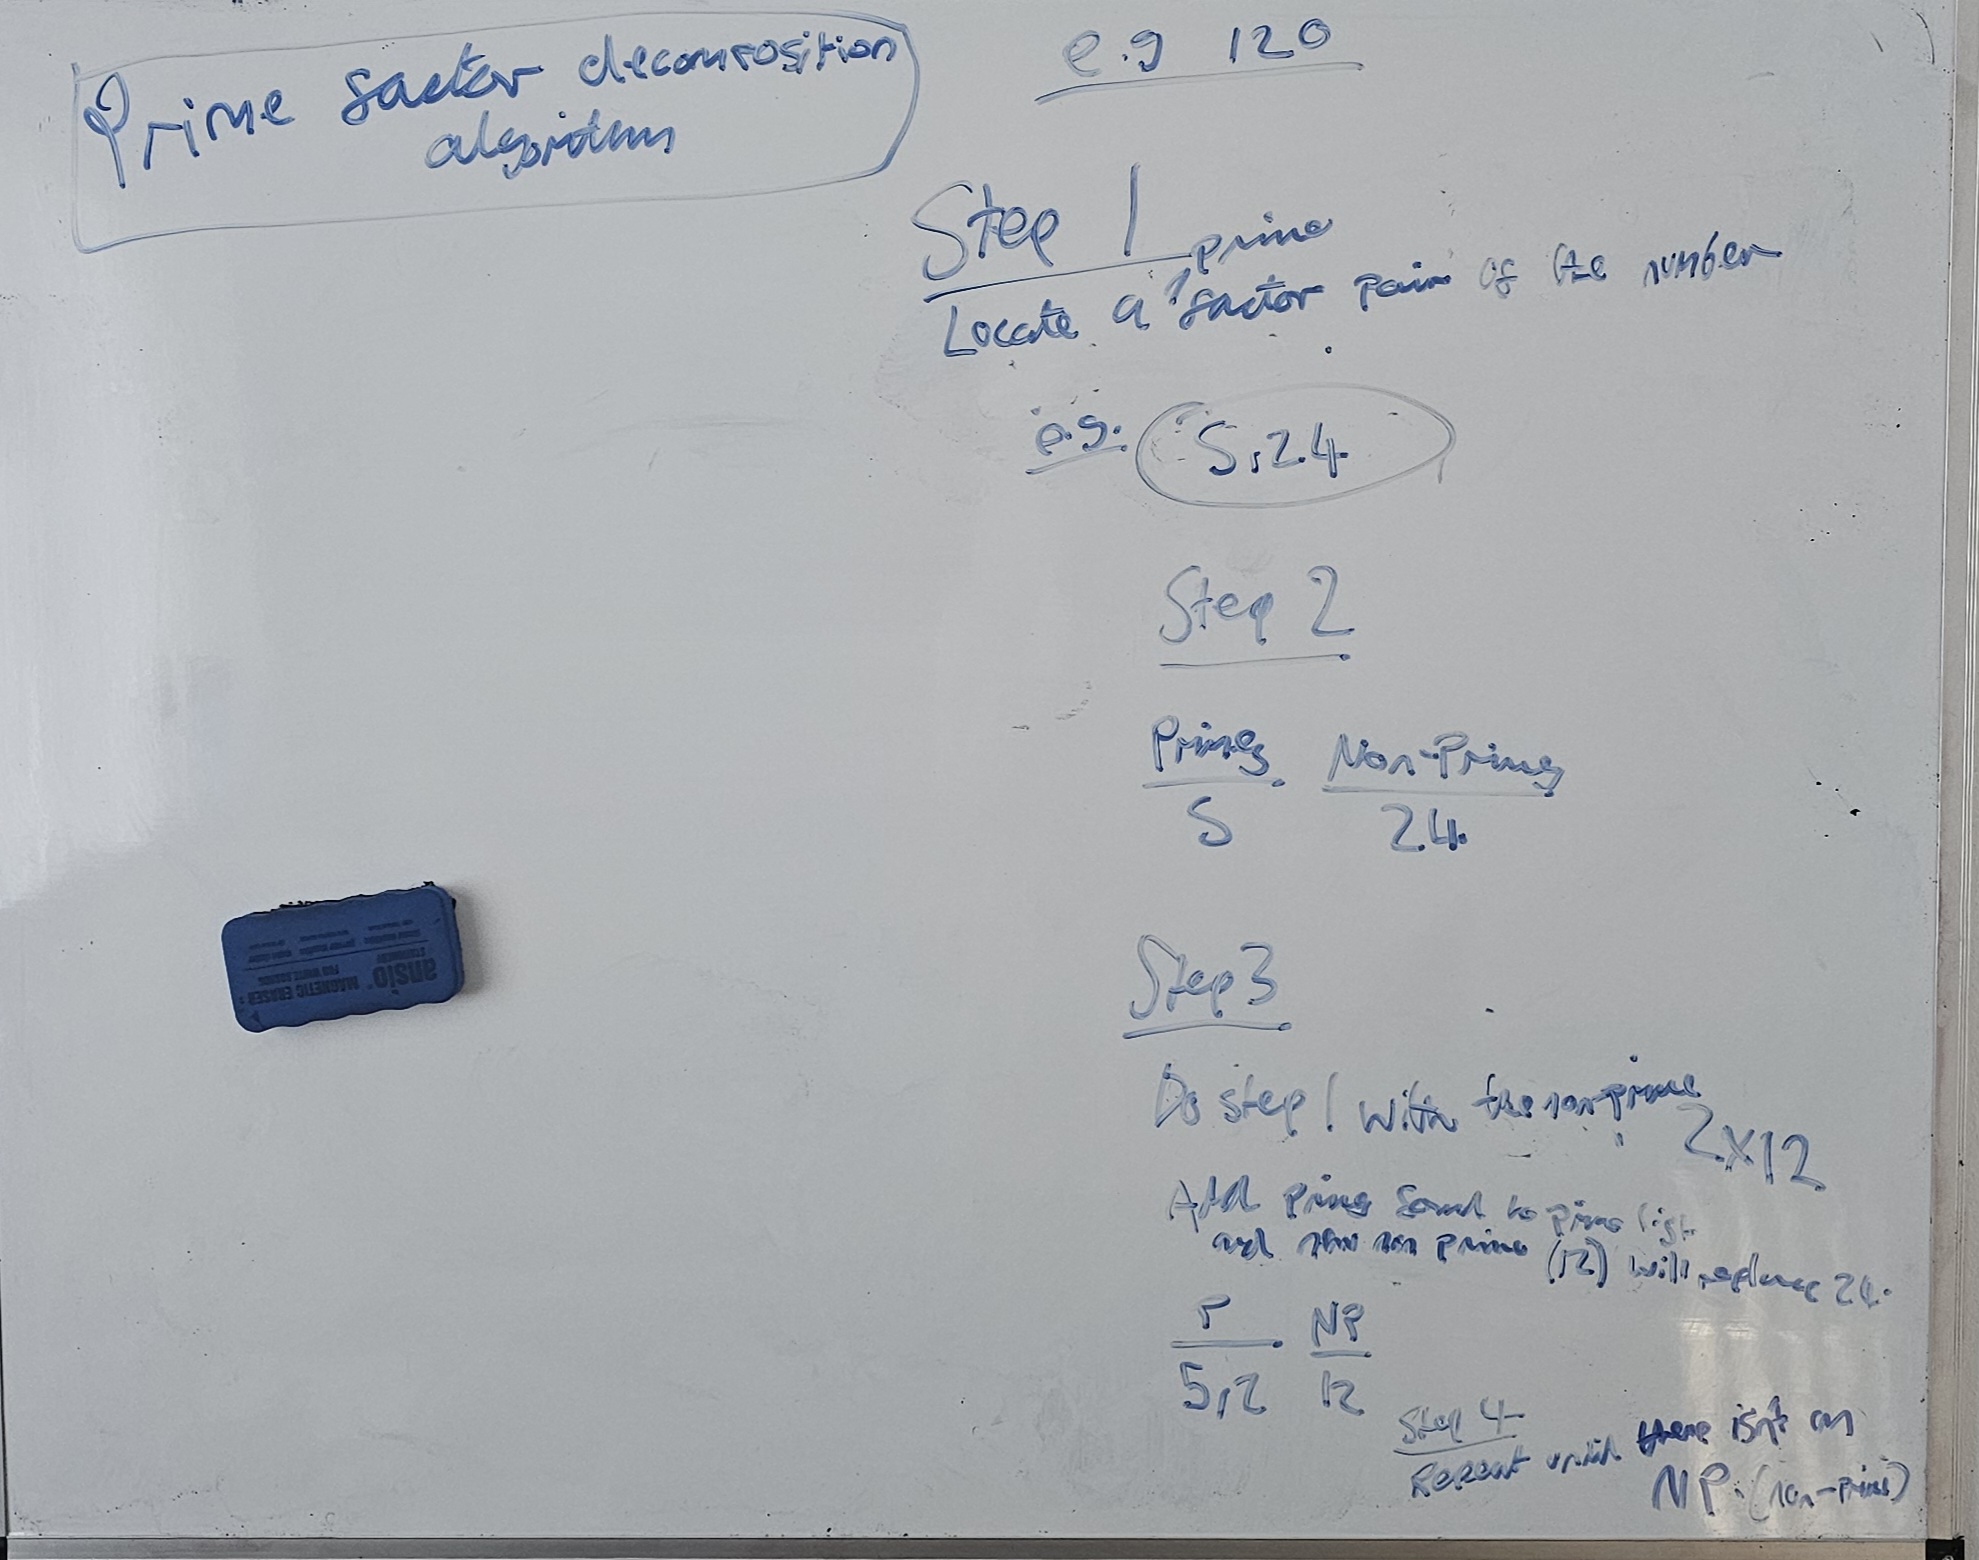 Prime factor decomposition
algorithm
e.g 120
Step 1
prime
Locate a factor pair of the number
e.g. 5,24
Step 2
Primes Non-Primes
5 24
Step 3
Do step 1 with the non-prime
2x12
Add primes found to prime list
and new non prime (12) will replace 24.
P NP
5,2 12
Step 4
Repeat until there isn't an
NP. (non-prime)
ansio
STATIONERY
MAGNETIC ERASER
FOR WHITE BOARDS